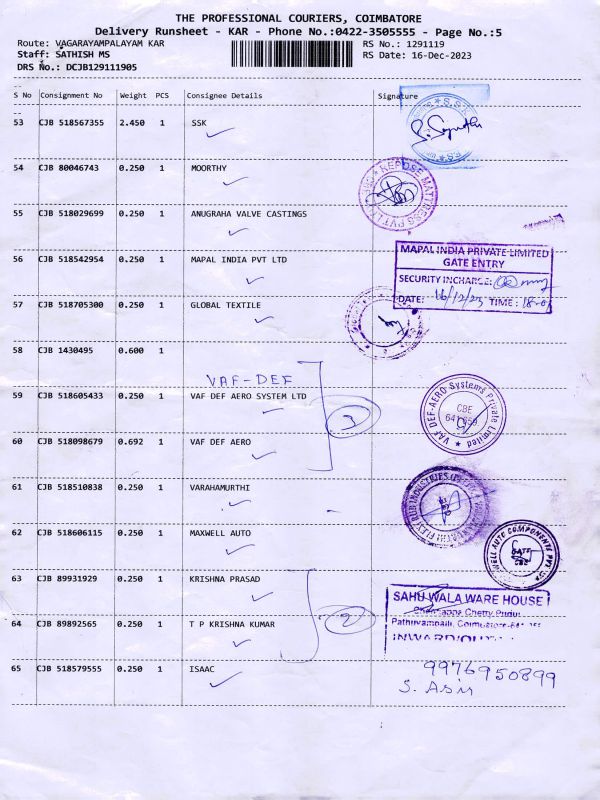 THE PROFESSIONAL COURIERS, COIMBATORE
Delivery Runsheet - KAR - Phone No.:0422-3505555 - Page No.:5
Route: VAGARAYAMPALAYAM KAR RS No.: 1291119
Staff: SATHISH MS RS Date: 16-Dec-2023
DRS No.: DCJB129111905
S No Consignment No Weight PCS Consignee Details Signature
53 CJB 518567355 2.450 1 SSK
54 CJB 80046743 0.250 1 MOORTHY
REPOSE MATTRESS PVT LTD
55 CJB 518029699 0.250 1 ANUGRAHA VALVE CASTINGS
56 CJB 518542954 0.250 1 MAPAL INDIA PVT LTD
MAPAL INDIA PRIVATE LIMITED
GATE ENTRY
SECURITY INCHARGE:
DATE: 16/12/23 TIME: 18-0
57 CJB 518705300 0.250 1 GLOBAL TEXTILE
58 CJB 1430495 0.600 1
VAF-DEF
59 CJB 518605433 0.250 1 VAF DEF AERO SYSTEM LTD
3
VAF DEF-AERO Systems Private Limited
CBE
60 CJB 518098679 0.692 1 VAF DEF AERO
61 CJB 518510838 0.250 1 VARAHAMURTHI
62 CJB 518606115 0.250 1 MAXWELL AUTO
MAXWELL AUTO COMPONENTS PVT
GATE
CBE
63 CJB 89931929 0.250 1 KRISHNA PRASAD
SAHUWALA WARE HOUSE
64 CJB 89892565 0.250 1 T P KRISHNA KUMAR
2
65 CJB 518579555 1 ISAAC
9976950899
S. Asir